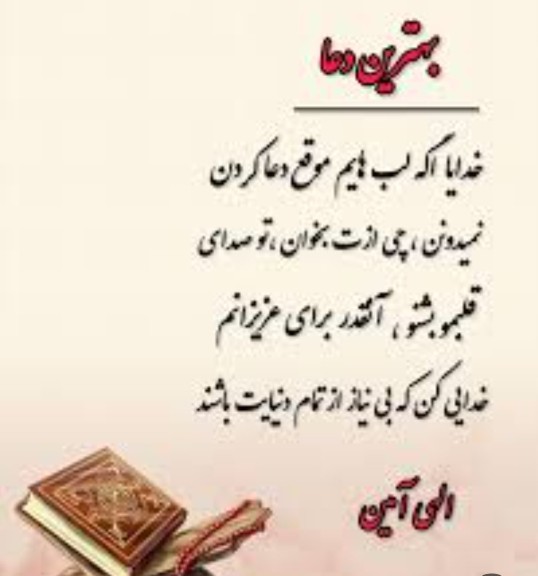 بهترین دعا
خدایا اگه لب هایم موقع دعا کردن
نمیدونن ، چی ازت بخوان ، تو صدای
قلبمو بشنو ، آنقدر برای عزیزانم
خدایی کن که بی نیاز از تمام دنیایت باشند
الهی آمین